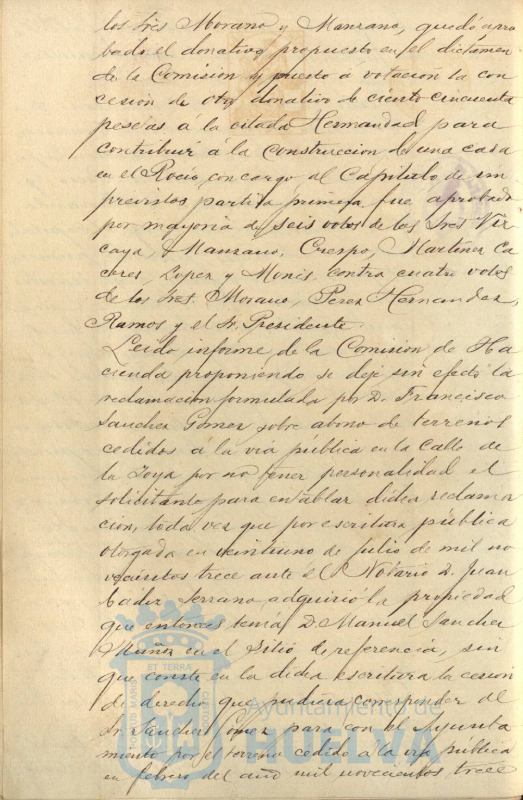 los Sres Morano y Manzano, quedó apro
bado el donativo propuesto en el dictamen
de la Comisión y puesto á votación la con
cesión de otro donativo de ciento cincuenta
pesetas á la citada Hermandad para
contribuir á la construcción de una casa
en el Rocio, con cargo al Capítulo de im
previstos partida primera fue aprobado
por mayoria de seis votos de los Sres Viz
caya, Manzano, Crespo, Martinez Ca
ceres, Lopez y Monis contra cuatro votos
de los Sres. Morano, Perez Hernandez,
Ramos y el Sr. Presidente.
Leido informe de la Comisión de Ha
cienda proponiendo se deje sin efecto la
reclamación formulada por D. Francisco
Sanchez Gomez sobre abono de terrenos
cedidos á la via pública en la Calle de
la Joya por no tener personalidad el
solicitante para entablar dicha reclama
ción, toda vez que por escritura pública
otorgada en veintiuno de julio de mil no
vecientos trece ante el Notario D. Juan
Cadiz Serrano adquirió la propiedad
que entonces tenía D. Manuel Sanchez
Muñoz en el Sitio de referencia, sin
que conste en la dicha escritura la cesión
de derecho que pudiera corresponder al
Sr. Sanchez Gomez para con el Ayunta
miento por el terreno cedido á la via pública
en febrero del año mil novecientos trece
ET TERRA
Ayuntamiento de
HUELVA